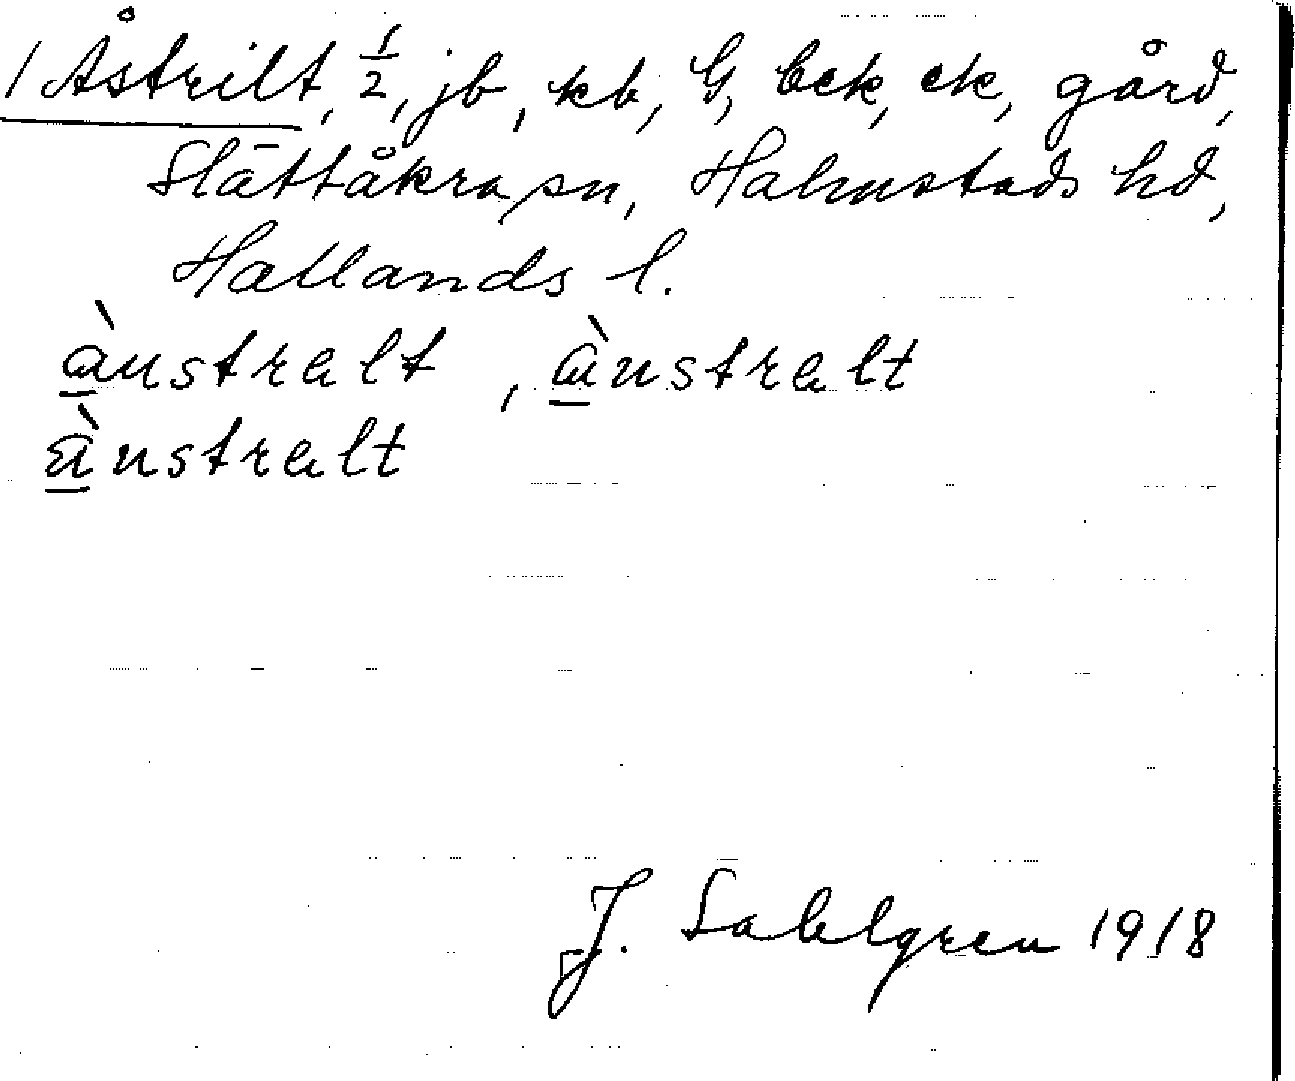 1 Åstrilt, 1/2, jb, kb, G, bck, ek, gård,
Slättåkra sn, Halmstads hd,
Hallands l.
ànstralt, ànstralt
ànstralt
J. Sahlgren 1918